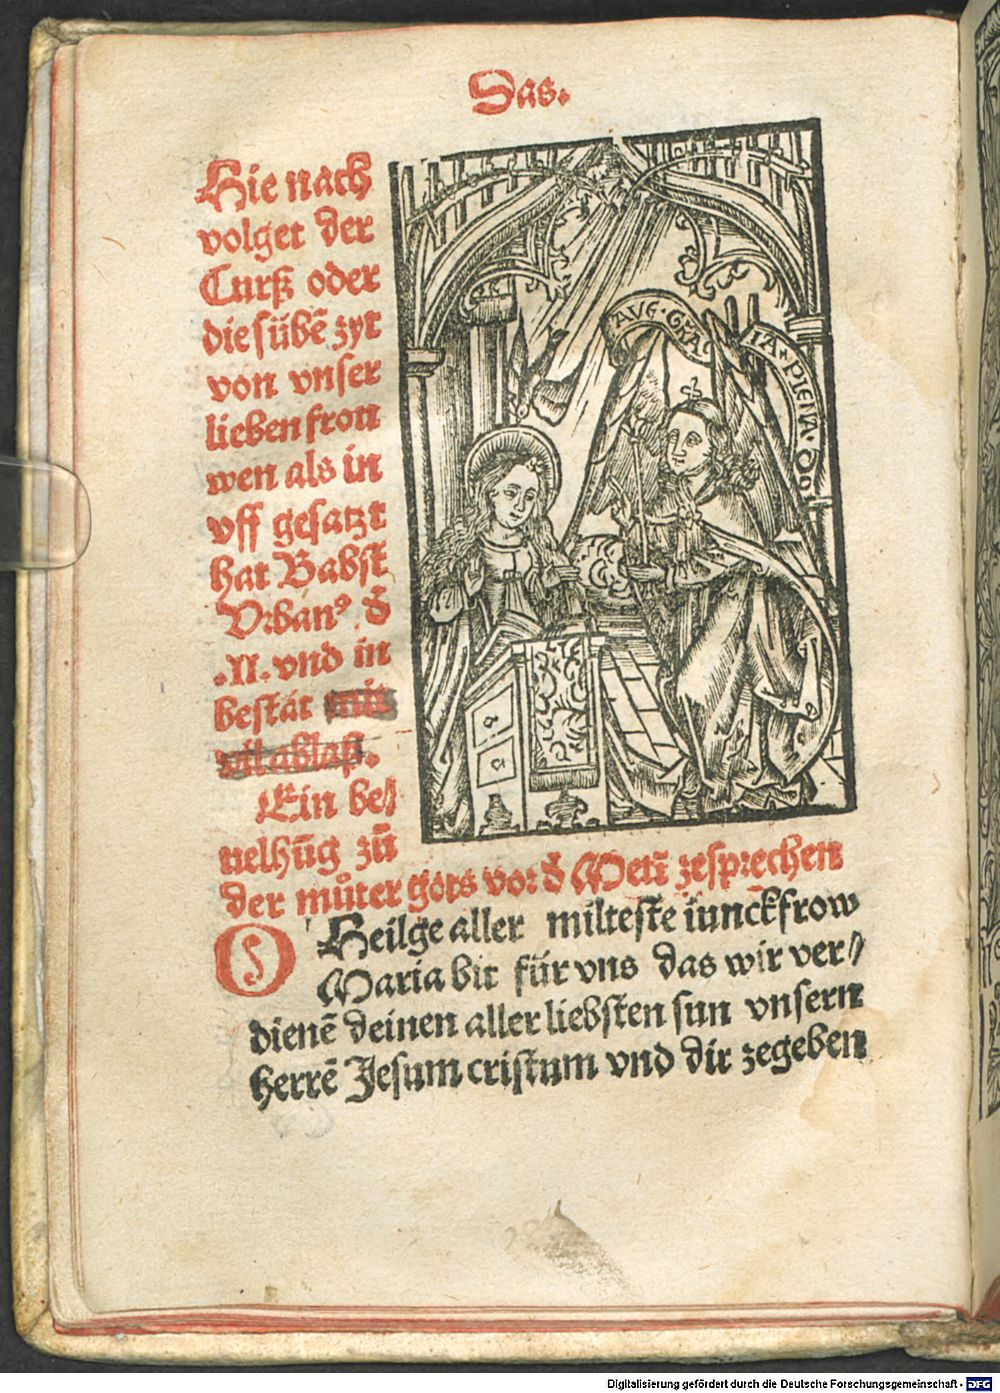 Das.
Hie nach
volget der
Curß oder
die sübē zyt
von vnser
lieben fron
wen als in
vff gesatzt
hat Babst
Vrbanꝰ. d̄
.II. vnd in
bestät mit
vil ablaß.
Ein be⸗
uelhūg zū
der můter gots vor d̄ Metī zesprechen
O Heilge aller milteste iunckfrow
Maria bit für vns das wir ver⸗
dienē deinen aller liebsten sun vnsern
herrē Jesum cristum vnd dir zegeben
AVE·GRA
IA·PLENA·DO
Digitalisierung gefördert durch die Deutsche Forschungsgemeinschaft - DFG